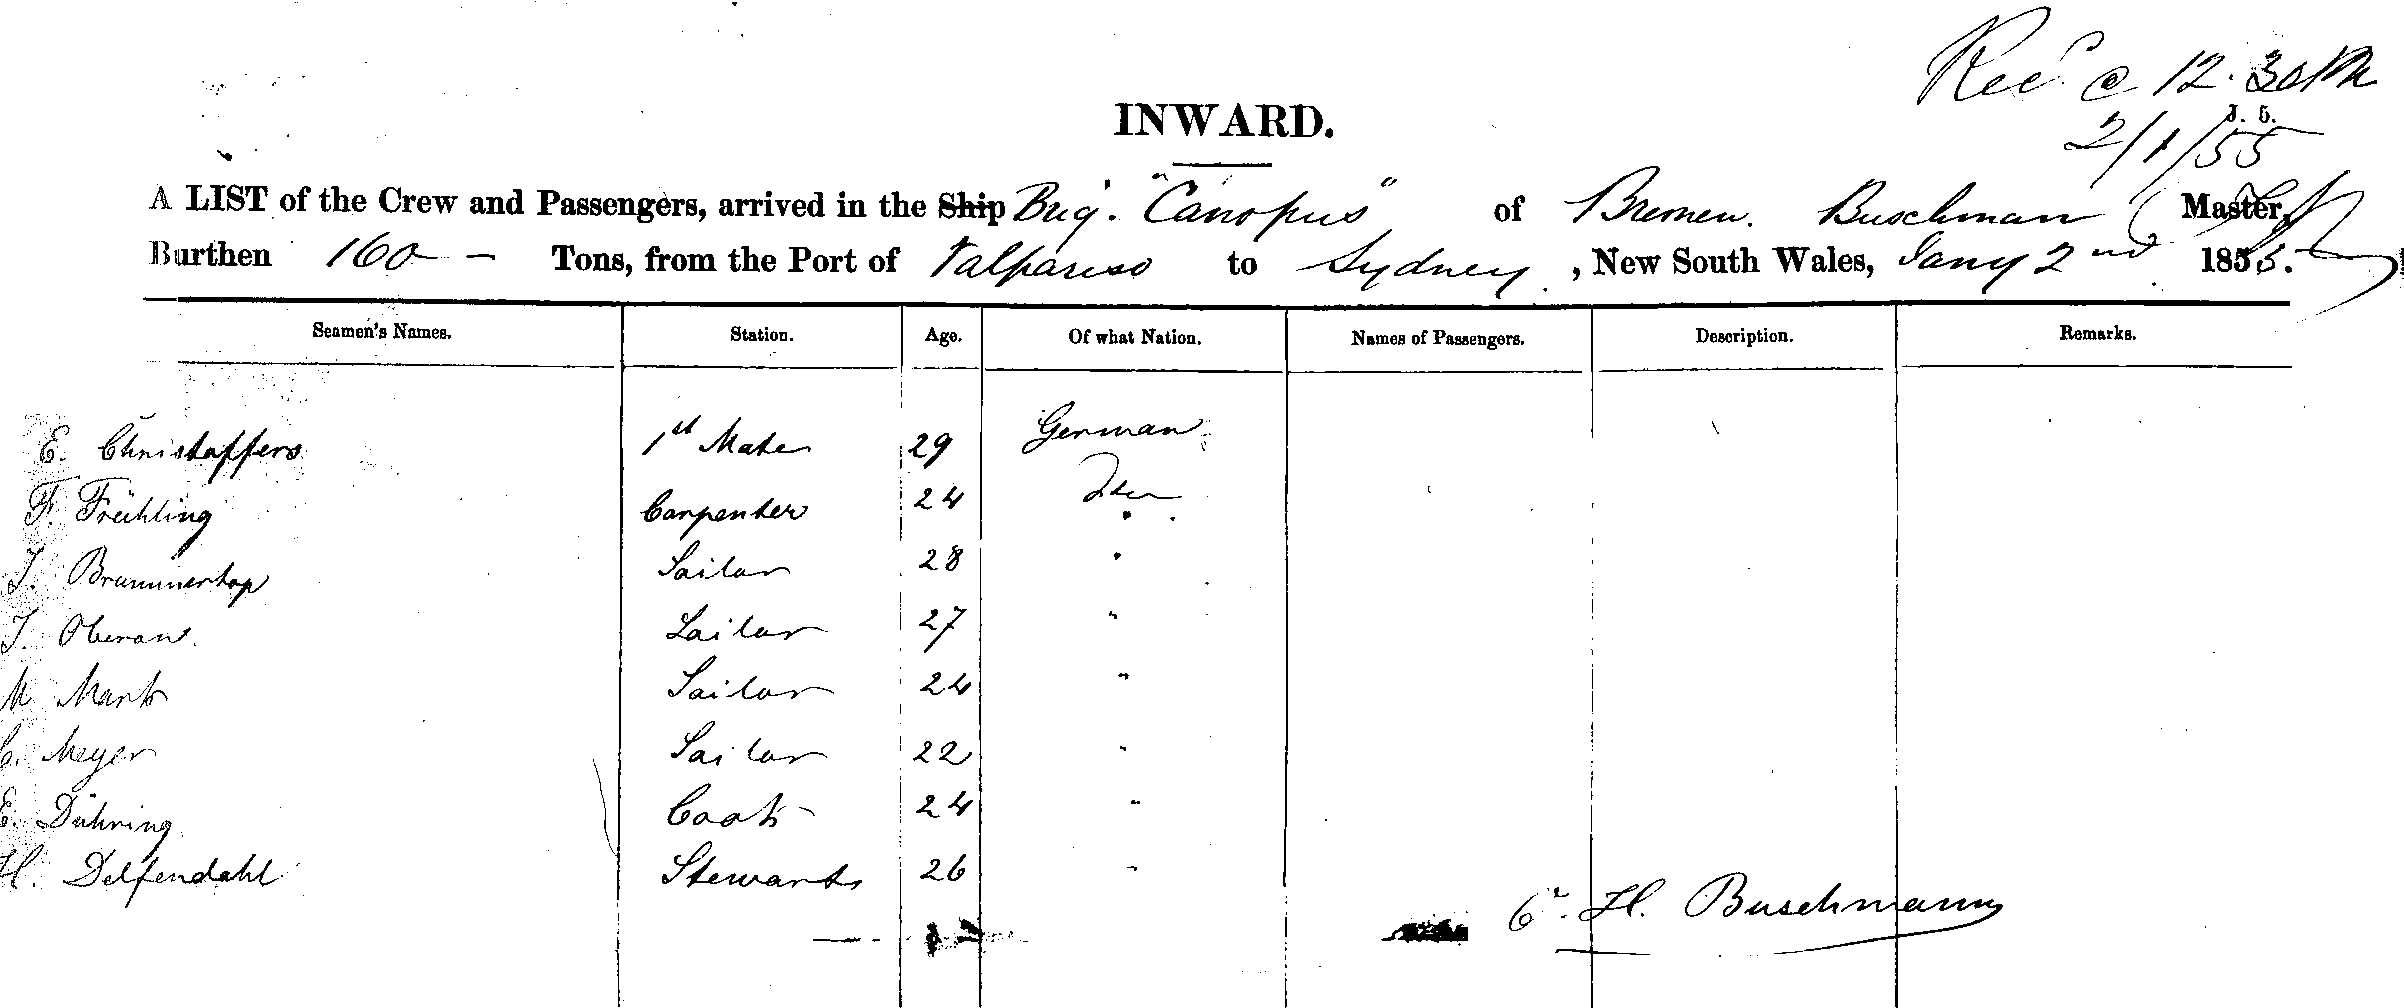 Recd @ 12.30 PM
J. 5.
2/1/55
INWARD.
A LIST of the Crew and Passengers, arrived in the Ship Brig. "Canopus" of Bremen. Buschman Master,
Burthen 160 - Tons, from the Port of Valpariso to Sydney, New South Wales, Jany 2nd 1855.
Seamen's Names. Station. Age. Of what Nation. Names of Passengers. Description. Remarks.
E. Christoffers 1st Mate 29 German
F. Frühling Carpenter 24 Do
J. Brummerhop Sailor 28 "
J. Oberon Sailor 27 "
M. Mark Sailor 24 "
C. Meyer Sailor 22 "
E. Dühring Cook 24 "
H. Delfendahl Steward 26 "
Cr. H. Buschmann